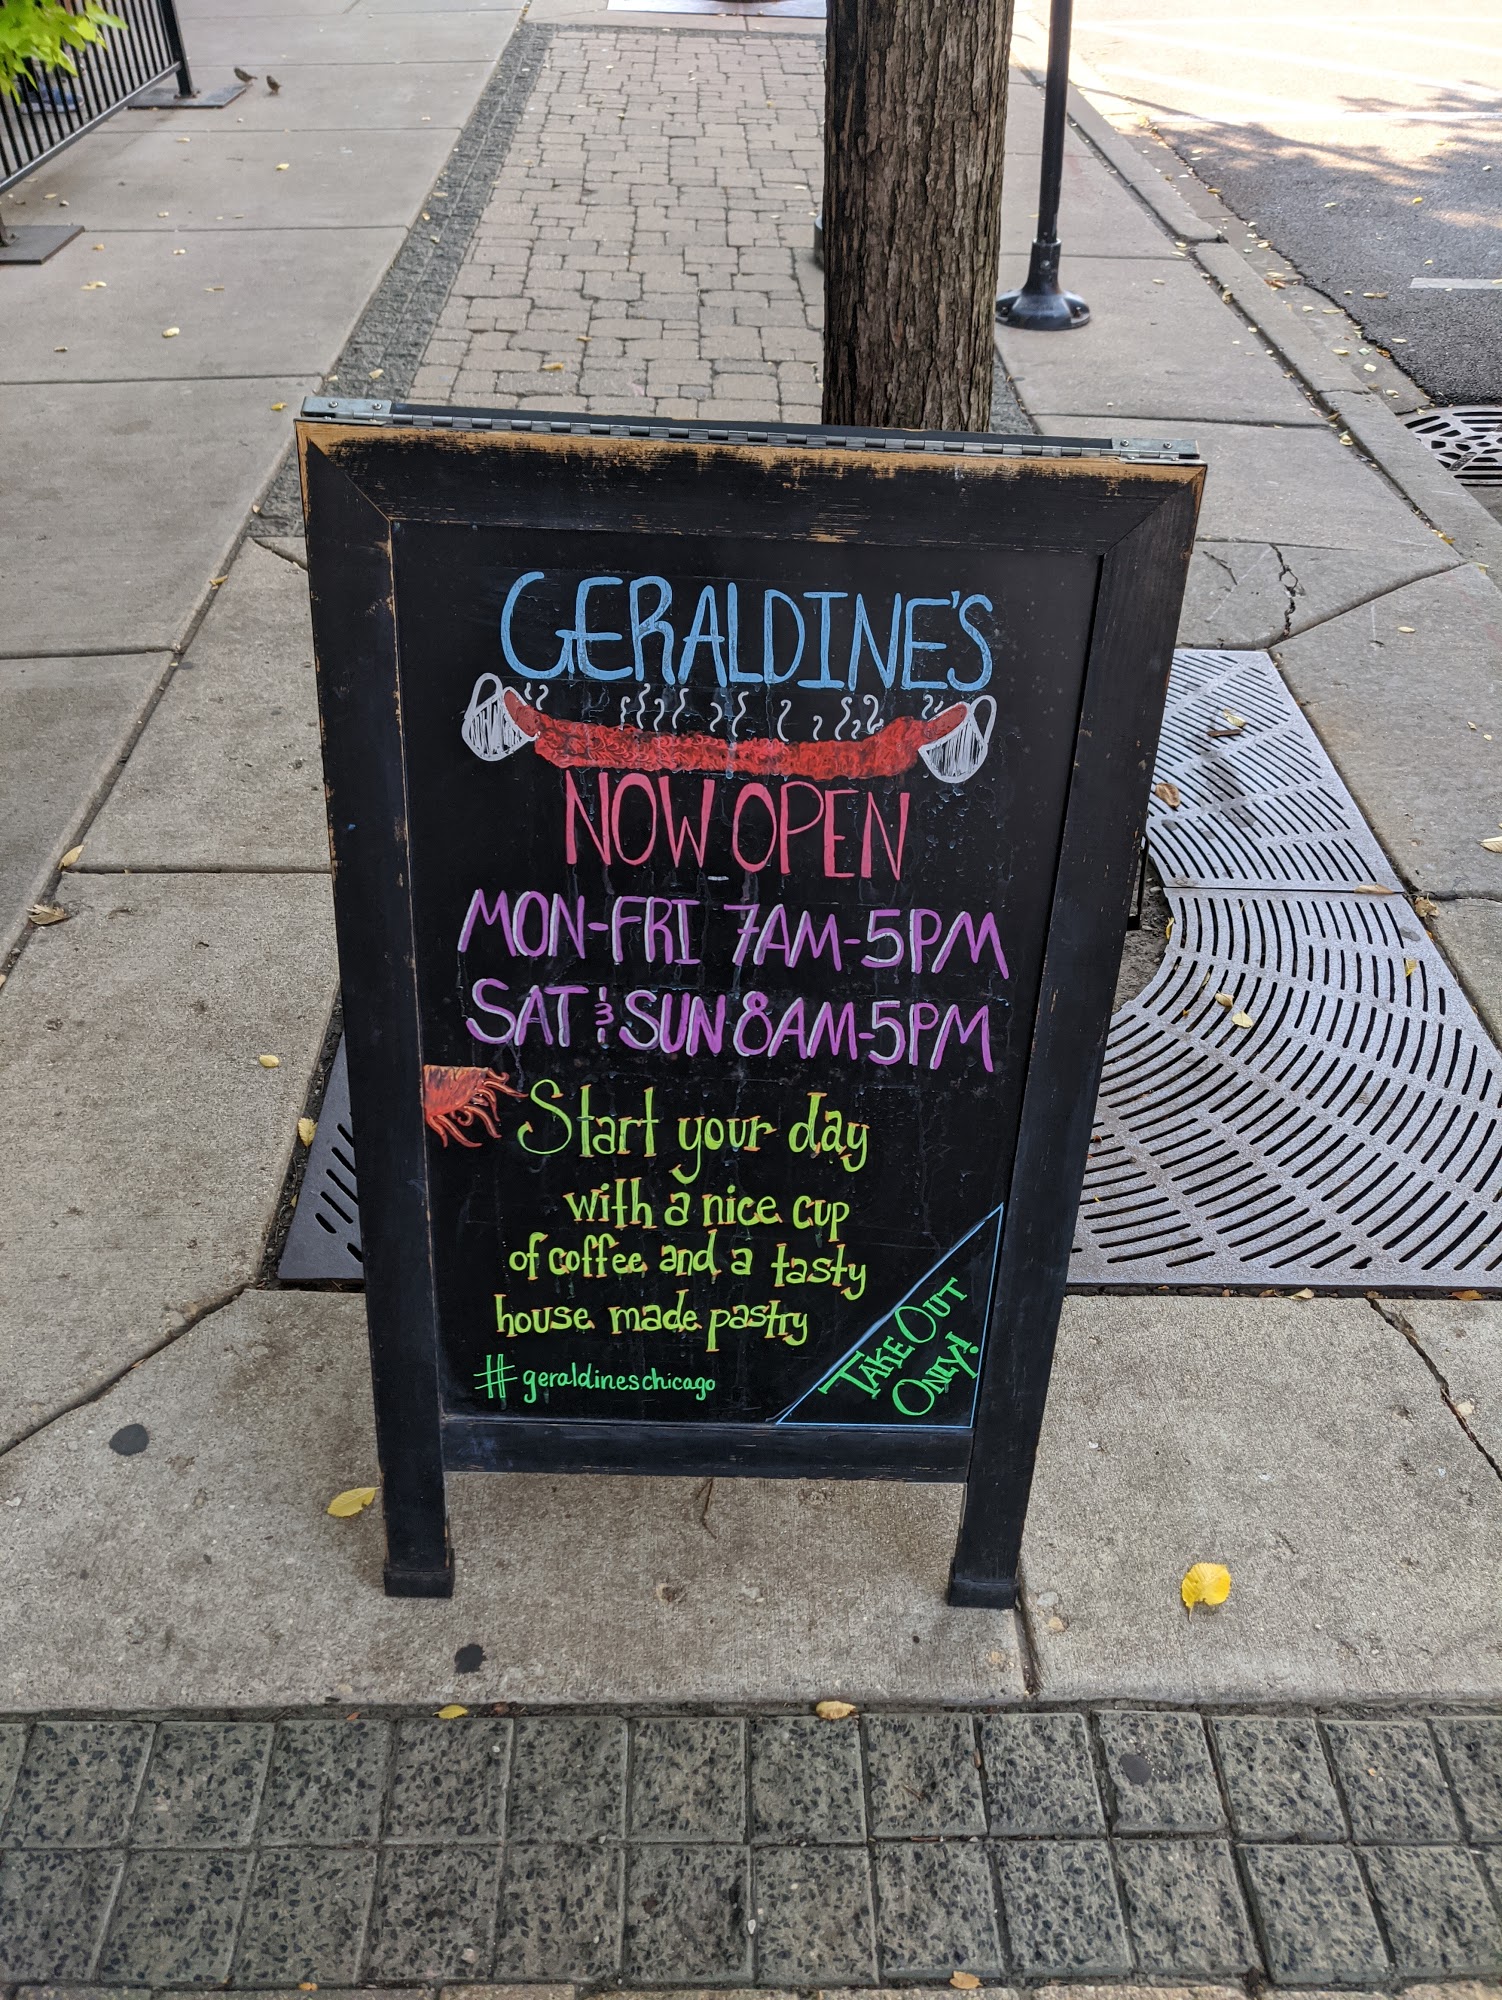 GERALDINE'S
NOW OPEN
MON-FRI 7AM-5PM
SAT & SUN 8AM-5PM
Start your day
with a nice cup
of coffee and a tasty
house made pastry
#geraldineschicago
TAKE OUT
ONLY!